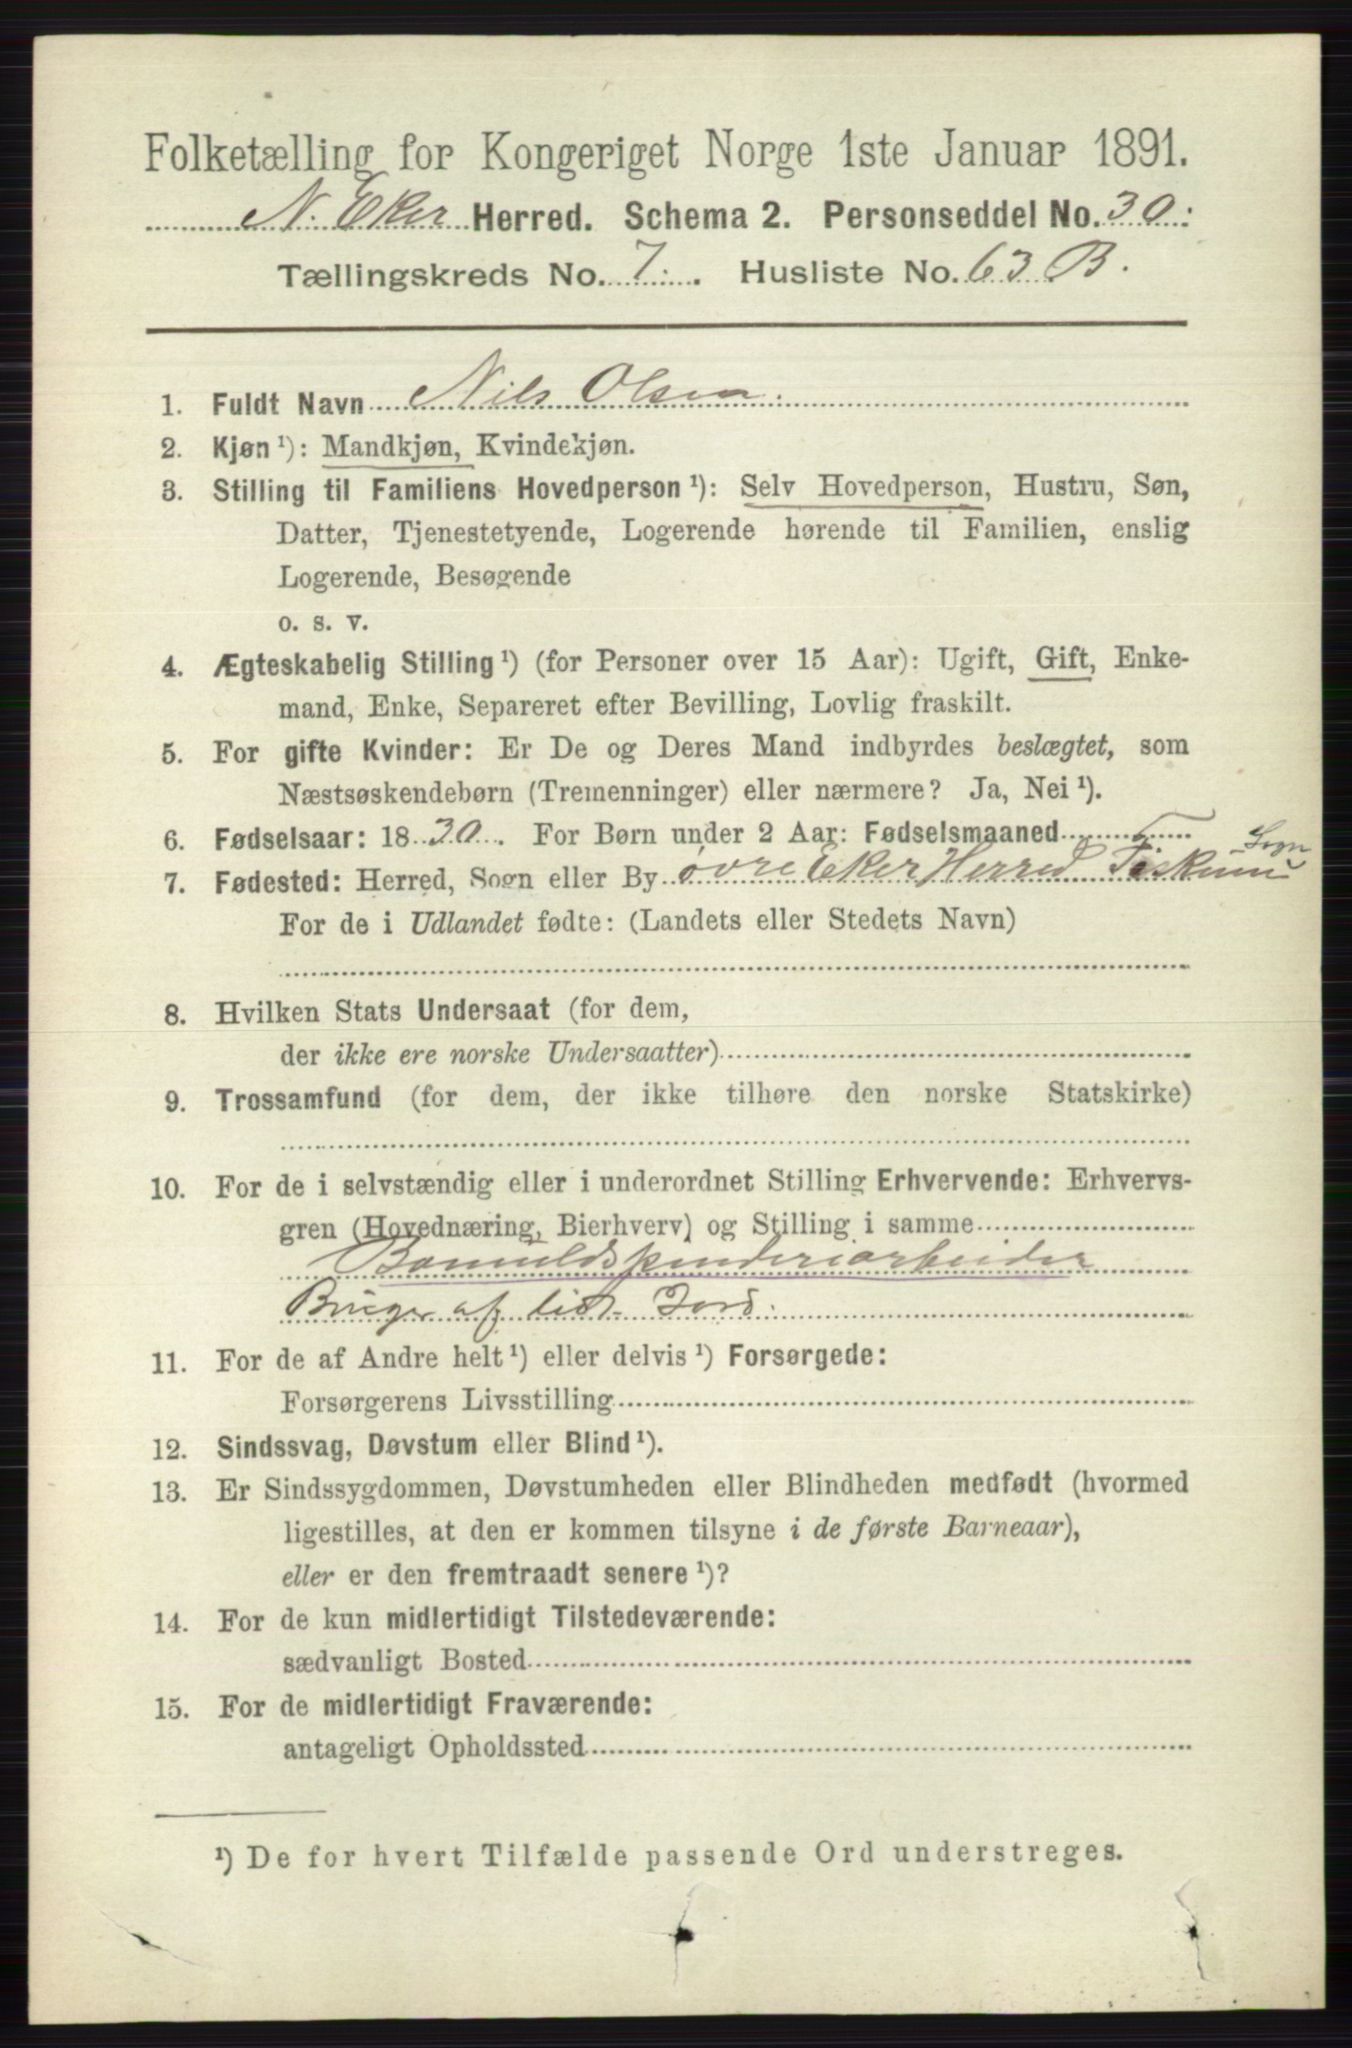 Folketælling for Kongeriget Norge 1ste Januar 1891.
N. Eker Herred. Schema 2. Personseddel No. 30.
Tællingskreds No. 7. Husliste No. 63 B.
1. Fuldt Navn Nils Olsen.
2. Kjøn ¹): Mandkjøn, Kvindekjøn.
3. Stilling til Familiens Hovedperson ¹): Selv Hovedperson, Hustru, Søn,
Datter, Tjenestetyende, Logerende hørende til Familien, enslig
Logerende, Besøgende
o. s. v.
4. Ægteskabelig Stilling ¹) (for Personer over 15 Aar): Ugift, Gift, Enke-
mand, Enke, Separeret efter Bevilling, Lovlig fraskilt.
5. For gifte Kvinder: Er De og Deres Mand indbyrdes beslægtet, som
Næstsøskendebørn (Tremenninger) eller nærmere? Ja, Nei ¹).
6. Fødselsaar: 1830. For Børn under 2 Aar: Fødselsmaaned
7. Fødested: Herred, Sogn eller By øvre Eker Herred Fiskum Sogn
For de i Udlandet fødte: (Landets eller Stedets Navn)
8. Hvilken Stats Undersaat (for dem,
der ikke ere norske Undersaatter)
9. Trossamfund (for dem, der ikke tilhøre den norske Statskirke)
10. For de i selvstændig eller i underordnet Stilling Erhvervende: Erhvervs-
gren (Hovednæring, Bierhverv) og Stilling i samme
Bomuldspinderiarbeider
Bruger af lidt Jord.
11. For de af Andre helt ¹) eller delvis ¹) Forsørgede:
Forsørgerens Livsstilling
12. Sindssvag, Døvstum eller Blind ¹).
13. Er Sindssygdommen, Døvstumheden eller Blindheden medfødt (hvormed
ligestilles, at den er kommen tilsyne i de første Barneaar),
eller er den fremtraadt senere ¹)?
14. For de kun midlertidigt Tilstedeværende:
sædvanligt Bosted
15. For de midlertidigt Fraværende:
antageligt Opholdssted
¹) De for hvert Tilfælde passende Ord understreges.